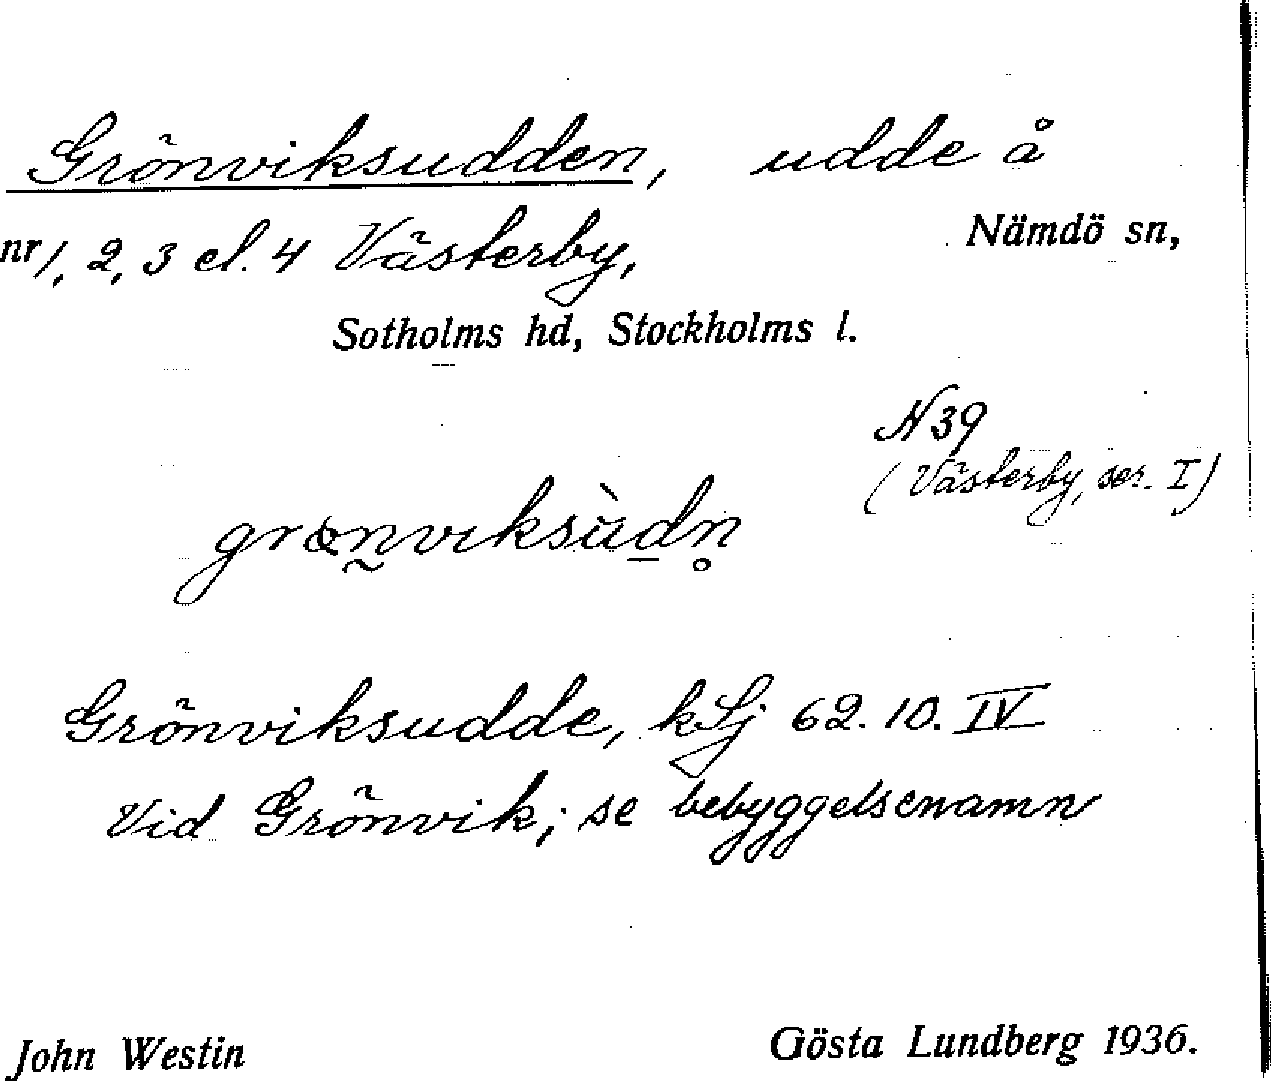 Grönviksudden, udde å
Nämdö sn,
nr 1, 2, 3 el. 4 Västerby,
Sotholms hd, Stockholms l.
N 39
(Västerby, ser. I)
Grönviksudde, kSj 62. 10. IV
Vid Grönvik; se bebyggelsenamn
John Westin
Gösta Lundberg 1936.